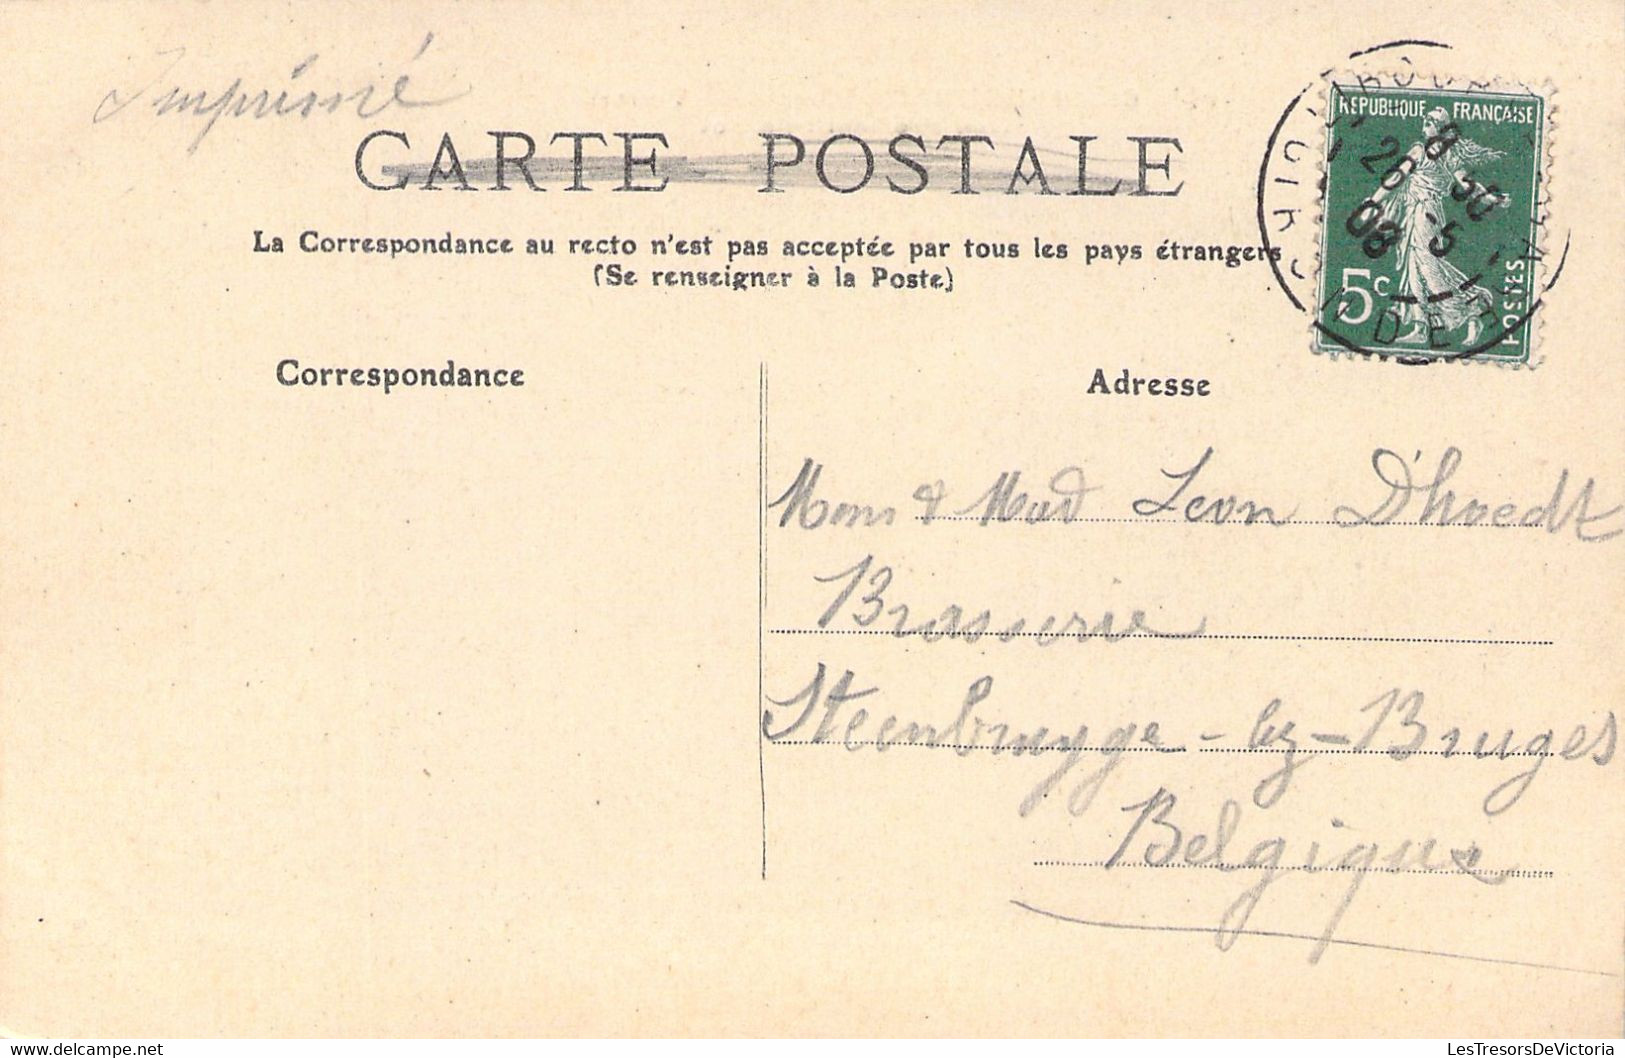 Imprimé
CARTE POSTALE
La Correspondance au recto n'est pas acceptée par tous les pays étrangers
(Se renseigner à la Poste)
REPUBLIQUE FRANÇAISE
5c
POSTES
8 30
26 -5
08
GIRONDE
Correspondance
Adresse
Mons & Mad Leon D'hoedt
Brasserie
Steenbrugge - lez - Bruges
Belgique
LesTresorsDeVictoria